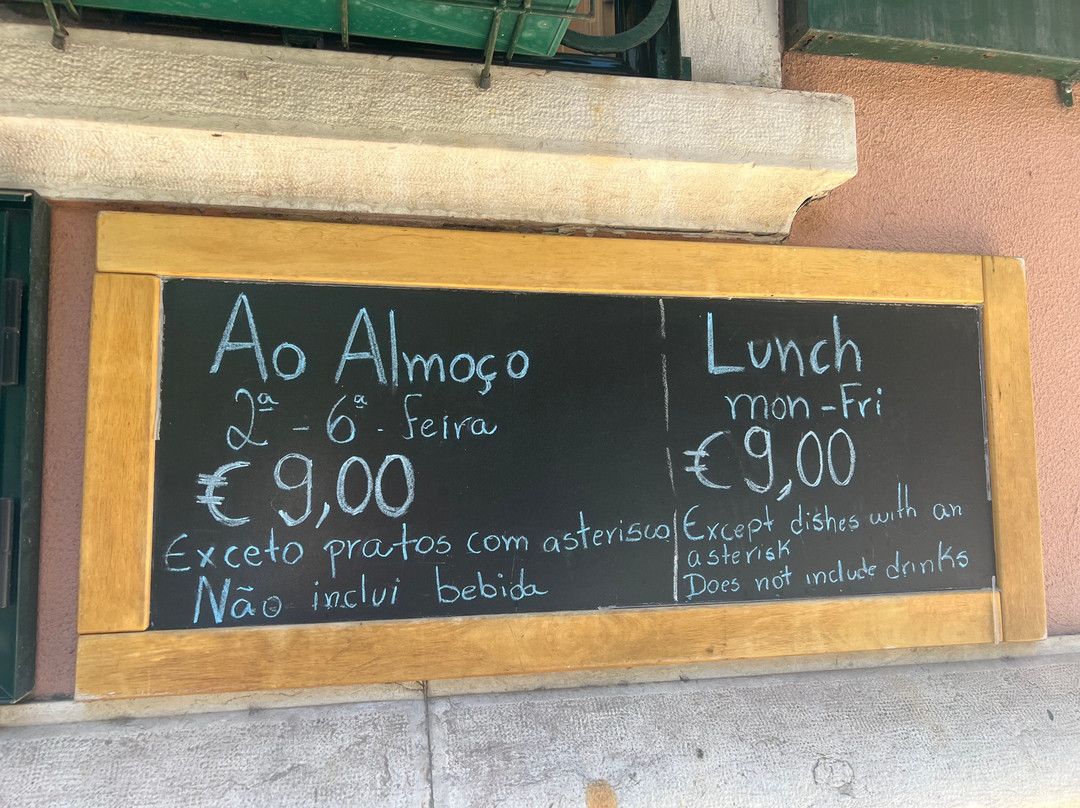 Ao Almoço
2ª - 6ª - feira
€ 9,00
Exceto pratos com asterisco
Não inclui bebida
Lunch
mon-Fri
€9,00
Except dishes with an
asterisk
Does not include drinks